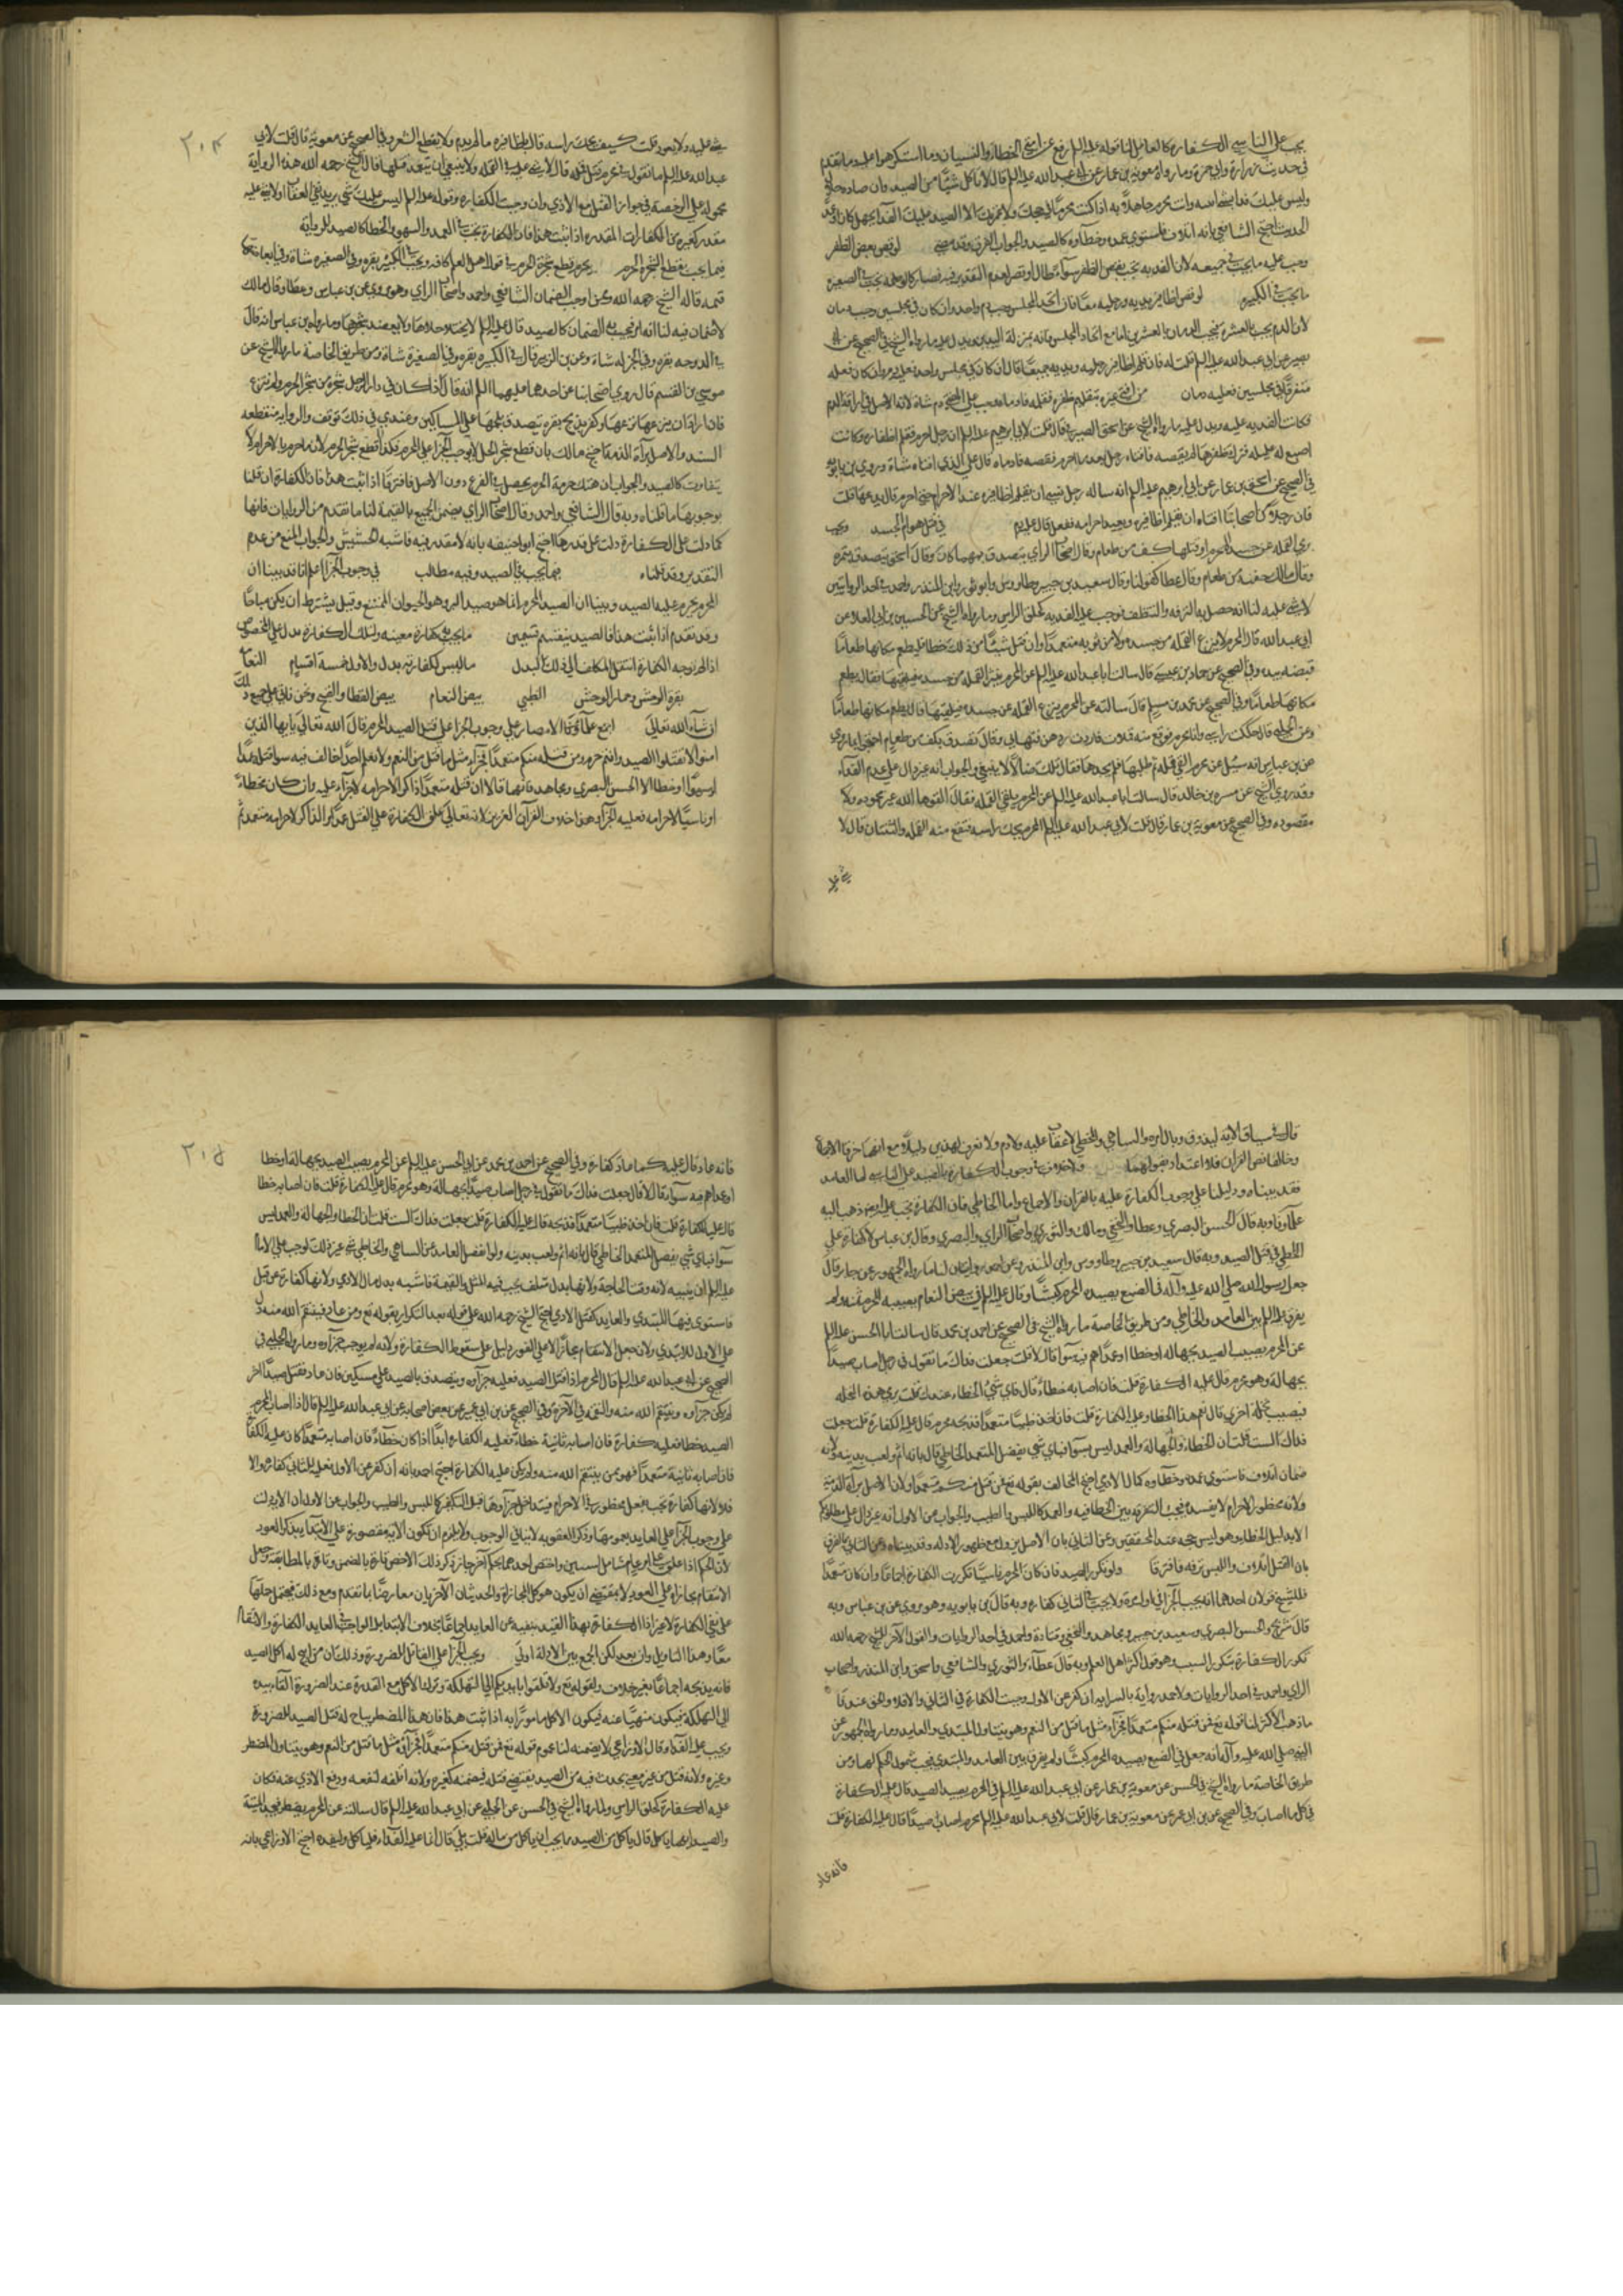 يجب على الناسي الكفارة كالعامل لنا قوله عليه السلم رفع عن امتي الخطاء والنسيان وما استكرهوا عليه وما تقدم
في حديث زرارة وابي حمزة وما رواه معوية بن عمار عن ابي عبد الله عليه السلم قال لا تاكل شيئا من الصيد وان صاده حلال
وليس عليك فداء ما اتيته وانت محرم جاهلا به اذا كنت محرما في حجك ولا عمرتك الا الصيد عليك الفداء بجهل كان او عمد
الحديث احتج الشافعي بانه اتلاف فاستوى عمده وخطاوه كالصيد والجواب الفرق وقد مضى لو قص بعض الظفر
وجب عليه ما يجب في جميعه لان الفدية تجب بقص الظفر سوآء طال او قصر لعدم التقدير فيه فصار كالموضحة يجب في الصغيرة
ما يجب في الكبيرة لو قص اظافير يديه ورجليه معا فان اتحد المجلس وجب دم واحد وان كان في مجلسين وجب دمان
لان الدم يجب بالعشرة فيجب الدمان بالعشرين اما مع اتحاد المجلس فانه بمنزلة اليدين ويدل عليه ما رواه الشيخ في الصحيح عن ابي
بصير عن ابي عبد الله عليه السلم قلت له فان قلم اظافير رجليه ويديه جميعا قال ان كان في مجلس واحد فعليه دم وان كان فعله
متفرقا في مجلسين فعليه دمان من افتى غيره بتقليم ظفره فقلمه فادماه وجب على المفتي دم شاة لانه الاصل في اراقة الدم
فكانت الفدية عليه ويدل عليه ما رواه الشيخ عن اسحق الصيرفي قال قلت لابي ابرهيم عليه السلم ان رجلا احرم فقلم اظفاره فكانت
اصبع له عليلة فترك ظفرها لم يقصه فافتاه رجل بعد ما احرم فقصه فادماه قال على الذي افتاه شاة وروى بن بابويه
في الصحيح عن اسحق بن عمار عن ابي ابرهيم عليه السلم انه ساله رجل نسي ان يقلم اظافيره عند الاحرام حتى احرم قال يدعها قلت
فان رجلا من اصحابنا افتاه ان يقلم اظافيره ويعيد احرامه ففعل قال عليه دم في قتل هوام الجسد ويجب
برمي القملة عن جسد المحرم او قتلها كف من طعام وقال اصحاب الراي يتصدق بمهما كان وقال اسحق يتصدق بتمرة
وقال مالك حفنة من طعام وقال عطا كقولنا وقال سعيد بن جبير وطاوس وابو ثور وابن المنذر واحمد في احدى الروايتين
لا شي عليه لنا انه حصل به الترفه والتنظف فوجب عليه الفدية كحلق الراس وما رواه الشيخ عن الحسين بن ابي العلا عن
ابي عبد الله قال المحرم لا ينزع القملة من جسده ولا من ثوبه متعمدا وان قتل شيئا من ذلك خطا فليطعم مكانها طعاما
قبضة بيده وفي الصحيح عن حماد بن عيسى قال سالت ابا عبد الله عليه السلم عن المحرم يبين القملة من جسده فيلقيها فقال يطعم
مكانها طعاما وفي الصحيح عن محمد بن مسلم قال سالته عن المحرم ينزع القملة عن جسده فيلقيها قال يطعم مكانها طعاما
وعن الحلبي قال حككت راسي وانا محرم فوقع منه قملات فاردت ردهن فنهاني وقال تصدق بكف من طعام احتجوا بما روي
عن بن عباس انه سئل عن محرم القى قملة ثم طلبها فلم يجدها فقال تلك ضالة لا تبتغى والجواب انه غير دال على عدم الفداء
وقد روى الشيخ عن مسره بن خالد قال سالت ابا عبد الله عليه السلم عن المحرم يلقي القملة فقال القوها ابعدها الله غير محموده ولا
مقصوده وفي الصحيح عن معوية بن عمار قال قلت لابي عبد الله عليه السلم المحرم يحك راسه فتقع منه القملة والثنتان قال لا
شي عليه
٢٠٤
شي عليه ولا يعود قلت كيف يحك راسه قال باظافيره ما لم يدم ولا يقطع الشعر وفي الصحيح عن معوية قال قلت لابي
عبد الله عليه السلم ما تقول في محرم قتل قملة قال لا شي عليه في القملة ولا ينبغي ان يتعمد قتلها قال الشيخ رحمه الله هذه الرواية
محمولة على الرخصة في جواز القتل مع الاذي وان وجبت الكفارة وقوله عليه السلم ليس عليك شي يريد نفي العقاب او لا شي عليه
مقدر كغيره من الكفارات المقدره اذا ثبت هذا فان الكفارة تجب في العمد والسهو والخطا كالصيد للرواية
فيما يجب بقطع الشجرة الحرم يحرم قطع شجرة الحرم في قول اهل العلم كافه ويجب في الكبيرة بقره وفي الصغيره شاة وفي ابعاضها
قيمه قاله الشيخ رحمه الله وممن اوجب الضمان الشافعي واحمد واصحاب الراي وهو مروي عن بن عباس وعطا وقال مالك
لا ضمان فيه لنا انه امر فيجب فيه الضمان كالصيد قال عليه السلم لا يختلا خلاها ولا يعضد شجرها وما رواه بن عباس انه قال
في الدوحه بقره وفي الجزله شاة وعن بن الزبير قال في الكبيره بقره وفي الصغيرة شاة ومن طريق الخاصة ما رواه الشيخ عن
موسى بن القسم قال روى اصحابنا عن احدهما عليهما السلم انه قال اذا كان في دار الرجل شجرة من شجر الحرم ولم تنزع
فان اراد ان ينزعها نزعها وكفر بذبح بقره يتصدق بلحمها على المساكين وعندي في ذلك توقف والرواية منقطعه
السند والاصل برآءة الذمة احتج مالك بان قطع شجر الحل لا يوجب الجزا على المحرم فكذا قطع شجر الحرم لان ما حرم بالاحرام لا
يتفاوت كالصيد والجواب ان هتك حرمة الحرم يحصل في الفرع دون الاصل فافترقا اذا ثبت هذا فان الكفارة ان قلنا
بوجوبها ما قلناه وبه قال الشافعي واحمد وقال اصحاب الراي يضمن الجميع بالقيمة لنا ما تقدم من الروايات فانها
كما دلت على الكفارة دلت على قدرها احتج ابو حنيفه بانه لا مقدر فيه فاشبه الحشيش والجواب المنع من عدم
التقدير وقد قلناه فيما يجب في الصيد وفيه مطالب في وجوب الجزا اعلم انا قد بينا ان
المحرم يحرم عليه الصيد وبينا ان الصيد المحرم انما هو صيد البر وهو الحيوان الممتنع وقيل يشترط ان يكون مباحا
وقد تقدم اذا ثبت هذا فالصيد ينقسم قسمين ما يجب فيه كفارة معينه ولتلك الكفارة بدل على الخصوص
اذا لم يوجد الكفارة انتقل المكلف الى ذلك البدل ما ليس لكفارته بدل والاول خمسة اقسام النعام
بقرة الوحش وحمار الوحش الظبي بيض النعام بيض القطا والقبج ونحن ناتي على جميع ذلك
ان شاء الله تعالى اجمع علماء الامصار على وجوب الجزا على قتل الصيد المحرم قال الله تعالى يا ايها الذين
امنوا لا تقتلوا الصيد وانتم حرم ومن قتله منكم متعمدا فجزآء مثل ما قتل من النعم ولا نعلم احدا خالف فيه سوا قتله عمدا
او سهوا او خطا الا الحسن البصري ومجاهد فانهما قالا ان قتله متعمدا ذاكرا لاحرامه لا جزآء عليه وان كان مخطاء
او ناسيا لاحرامه فعليه الجزآء وهذا خلاف القرآن العزيز لانه تعالى علق الكفارة على القتل عمدا والذاكر لاحرامه متعمد ثم
قال في سياق الآية ليذوق وبال امره والساهي والمخطي لا عقاب عليه ولا ذم ولا نعرف لهذين دليلا مع انهما خرقا الاجماع
وخالفا نص القرآن فلا اعتداد بقولهما ولا خلاف في وجوب الكفارة بالصيد على الناسي اما العامد
فقد بيناه ودليلنا على وجوب الكفارة عليه بالقرآن والاجماع واما الخاطي فان الكفارة تجب عليه ايضا ذهب اليه
علماونا وبه قال الحسن البصري وعطا والنخعي ومالك والثوري واصحاب الراي والبصري وقال بن عباس لا كفارة على
الخاطي في قتل الصيد وبه قال سعيد بن جبير وطاووس وابن المنذر وعن احمد روايتان لنا ما رواه الجمهور عن جابر قال
جعل رسول الله صلى الله عليه وآله في الضبع يصيده المحرم كبشا وقال عليه السلم في بيض النعام يصيبه المحرم ثمنه ولم
يفرق عليه السلم بين العامد والخاطي ومن طريق الخاصة ما رواه الشيخ في الصحيح عن احمد بن محمد قال سالت ابا الحسن عليه السلم
عن المحرم يصيب الصيد بجهالة او خطا او عمدا اهم فيه سوا قال لا قلت جعلت فداك ما تقول في رجل اصاب صيدا
بجهالة وهو محرم قال عليه الكفارة قلت فان اصابه خطاء قال فاي شي الخطاء عندك قلت يرمي هذه النخله
فيصيب نخلة اخرى قال نعم هذا الخطا وعليه الكفارة قلت فان اخذ ظبيا متعمدا فذبحه محرم قال عليه الكفارة قلت جعلت
فداك الست قلت ان الخطاء والجهالة والعمد ليس بسوآ فباي شي يفضل المتعمد الخاطي قال بانه اثم ولعب بدينه ولانه
ضمان اتلاف فاستوى عمده وخطاوه كمال الادمي احتج المخالف بقوله تع ومن قتله منكم متعمدا ولان الاصل برآة الذمة
ولانه محظور الاحرام لا يفسده فيجب التفرقة بين الخطا فيه والعمد كاللبس والطيب والجواب عن الاول انه غير دال على مطلوبكم
الا بدليل الخطاب وهو ليس حجه عند المحققين وعن الثاني بان الاصل يزول مع ظهور الادله وقد بيناه وعن الثالث بالفرق
بان القتل اتلاف واللبس ترفه فافترقا ولو تكرر الصيد فان كان المحرم ناسيا تكررت الكفارة اجماعا وان كان متعمدا
فللشيخ قولان احدهما انه يجب الجزآء في اول مرة ولا يجب في الثاني كفاره وبه قال بن بابويه وهو مروي عن بن عباس وبه
قال شريح والحسن البصري وسعيد بن جبير ومجاهد والنخعي وقتادة واحمد في احد الروايات والقول الآخر للشيخ رحمه الله
تكرر الكفارة بتكرر السبب وهو قول اكثر اهل العلم وبه قال عطآء والثوري والشافعي واسحق وابن المنذر واصحاب
الراي واحمد في احد الروايات ولاحمد رواية بالثالثه ان كفر عن الاول وجبت الكفارة في الثاني والا فلا والحق عندنا
ما ذهب الاكثر لنا قوله تع فمن قتله منكم متعمدا فجزآء مثل ما قتل من النعم وهو يتناول المبتدي والعايد وما رواه الجمهور عن
النبي صلى الله عليه وآله انه جعل في الضبع يصيده المحرم كبشا ولم يفرق بين العامد والمبتدي فيجب شمول الحكم لهما ومن
طريق الخاصة ما رواه الشيخ في الحسن عن معوية بن عمار عن ابي عبد الله عليه السلم في المحرم يصيد الصيد قال عليه الكفارة
في كل ما اصاب وفي الصحيح عن بن ابي عمير عن معوية بن عمار قال قلت لابي عبد الله عليه السلم محرم اصاب صيدا قال عليه الكفارة قلت
فانه عاد
٢٠٥
فانه عاد قال عليه كلما عاد كفارة وفي الصحيح عن احمد بن محمد عن ابي الحسن عليه السلم عن المحرم يصيب الصيد بجهالة او خطا
او عمدا هم فيه سوآء قال لا قال جعلت فداك ما تقول في رجل اصاب صيدا بجهالة وهو محرم قال عليه الكفارة قلت فان اصابه خطا
قال عليه الكفارة قلت فان اخذ ظبيا متعمدا فذبحه قال عليه الكفارة قلت جعلت فداك الست قلت ان الخطا والجهالة والعمد ليس
سوآ فباي شي يفضل المتعمد الخاطي قال بانه اثم ولعب بدينه ولو افضل العامد من الساهي والخاطي شي غير ذلك لوجب على الامام
عليه السلم ان يبينه لانه وقت الحاجة ولانها بدل متلف يجب فيه المثل والقيمة فاشبه بدل مال الادمي ولانها كفارة عن قتل
فاستوى فيها المبتدي والعايد كقتل الادمي احتج الشيخ رحمه الله على قوله بعدم التكرار بقوله تع ومن عاد فينتقم الله منه دل
على الاول للابتدي ولان جعل الانتقام مجازا الاعلى الفور دليل على سقوط الكفارة ولانه لم يوجب جزآوه وما رواه الحلبي في
الصحيح عن ابي عبد الله عليه السلم قال المحرم اذا قتل الصيد فعليه جزآوه ويتصدق بالصيد على مسكين فان عاد فقتل صيدا اخر
لم يكن جزآوه وينتقم الله منه والنقمة في الآخرة وفي الصحيح عن بن ابي عمير عن بعض اصحابه عن ابي عبد الله عليه السلم قال اذا اصاب المحرم
الصيد خطا فعليه كفارة فان اصابه ثانية خطاء فعليه الكفاره ابدا اذا كان خطاء فان اصابه متعمدا كان عليه الكفارة
فان اصابه ثانية متعمدا فهو ممن ينتقم الله منه ولم يكن عليه الكفارة احتج احمد بانه ان كفر عن الاول فعليه للثاني كفارة والا
فلا لانها كفارة تجب بفعل محظور في الاحرام فيتداخل جزآوها قبل التكفير كاللبس والطيب والجواب عن الاول ان الآية دلت
على وجوب الجزا على العايد بعمومها وذكر العقوبه لا ينافي الوجوب ولا يلزم ان تكون الآية مقصورة على الابتدآء بذكر العود
لان الحكم اذا علق على امر عام شامل لسببين واختص احدهما بحكم آخر جاز ذكر ذلك الاخص تارة بالضمن وتارة بالمطابقة وجعل
الانتقام مجازاة على العود لا يقتضي ان يكون هو كل المجازاة والحديثان الآخران معارضان بما تقدم ومع ذلك فيحتمل حملها
على نفي الكفارة لا غير اذا الكفارة بهذا القيد منفية عن العايد اجماعا بخلاف الابتدآء بل الواجب في العايد الكفارة والانتقام
معا وهذا التاويل وان بعد لكن الجمع بين الادلة اولى ويجب الجزآء على القاتل للضرورة وذلك بان من ابيح له اكل الصيد
فانه يذبحه اجماعا بغير خلاف ولقوله تع ولا تلقوا بايديكم الى التهلكة وترك الاكل مع القدرة عند الضرورة القآء بيده
الى التهلكة فيكون منهيا عنه فيكون الاكل مامورا به اذا ثبت هذا فان هذا المضطر يباح له قتل الصيد للضرورة
ويجب عليه الفدآء وقال الاوزاعي لا يضمنه لنا عموم قوله تع فمن قتله منكم متعمدا فجزآء مثل ما قتل من النعم وهو يتناول المضطر
وغيره ولانه قتل من غير معنى يحدث فيه من الصيد يقتضي قتله فيضمنه كغيره ولانه اتلفه لنفعه ودفع الاذى عنه فكان
عليه الكفارة كحلق الراس ولما رواه الشيخ في الحسن عن الحلبي عن ابي عبد الله عليه السلم قال سالته عن المحرم يضطر فيجد الميتة
والصيد ايهما ياكل قال ياكل من الصيد ما يحب ان ياكل من ماله قلت بلى قال انما عليه الفدآء فلياكل وليفده احتج الاوزاعي بانه